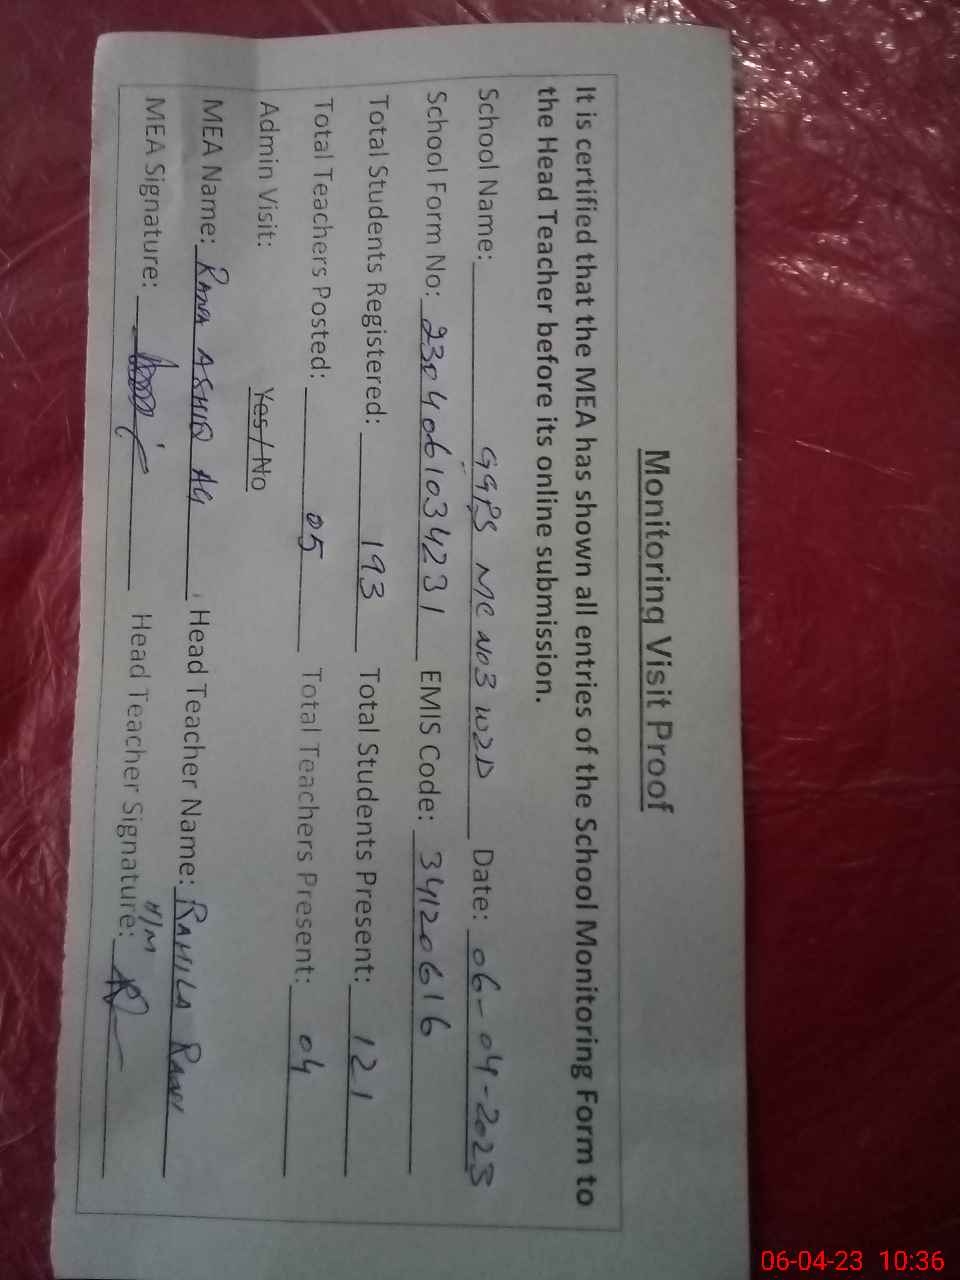 Monitoring Visit Proof
It is certified that the MEA has shown all entries of the School Monitoring Form to
the Head Teacher before its online submission.
School Name: GGPS MC NO3 WZD Date: 06-04-2023
School Form No: 2304061034231 EMIS Code: 34120616
Total Students Registered: 193 Total Students Present: 121
Total Teachers Posted: 05 Total Teachers Present: 04
Admin Visit: Yes/No
MEA Name: RANA ASHIQ Ali Head Teacher Name: RAHILA RANI
MEA Signature: Head Teacher Signature: H/M
06-04-23 10:36